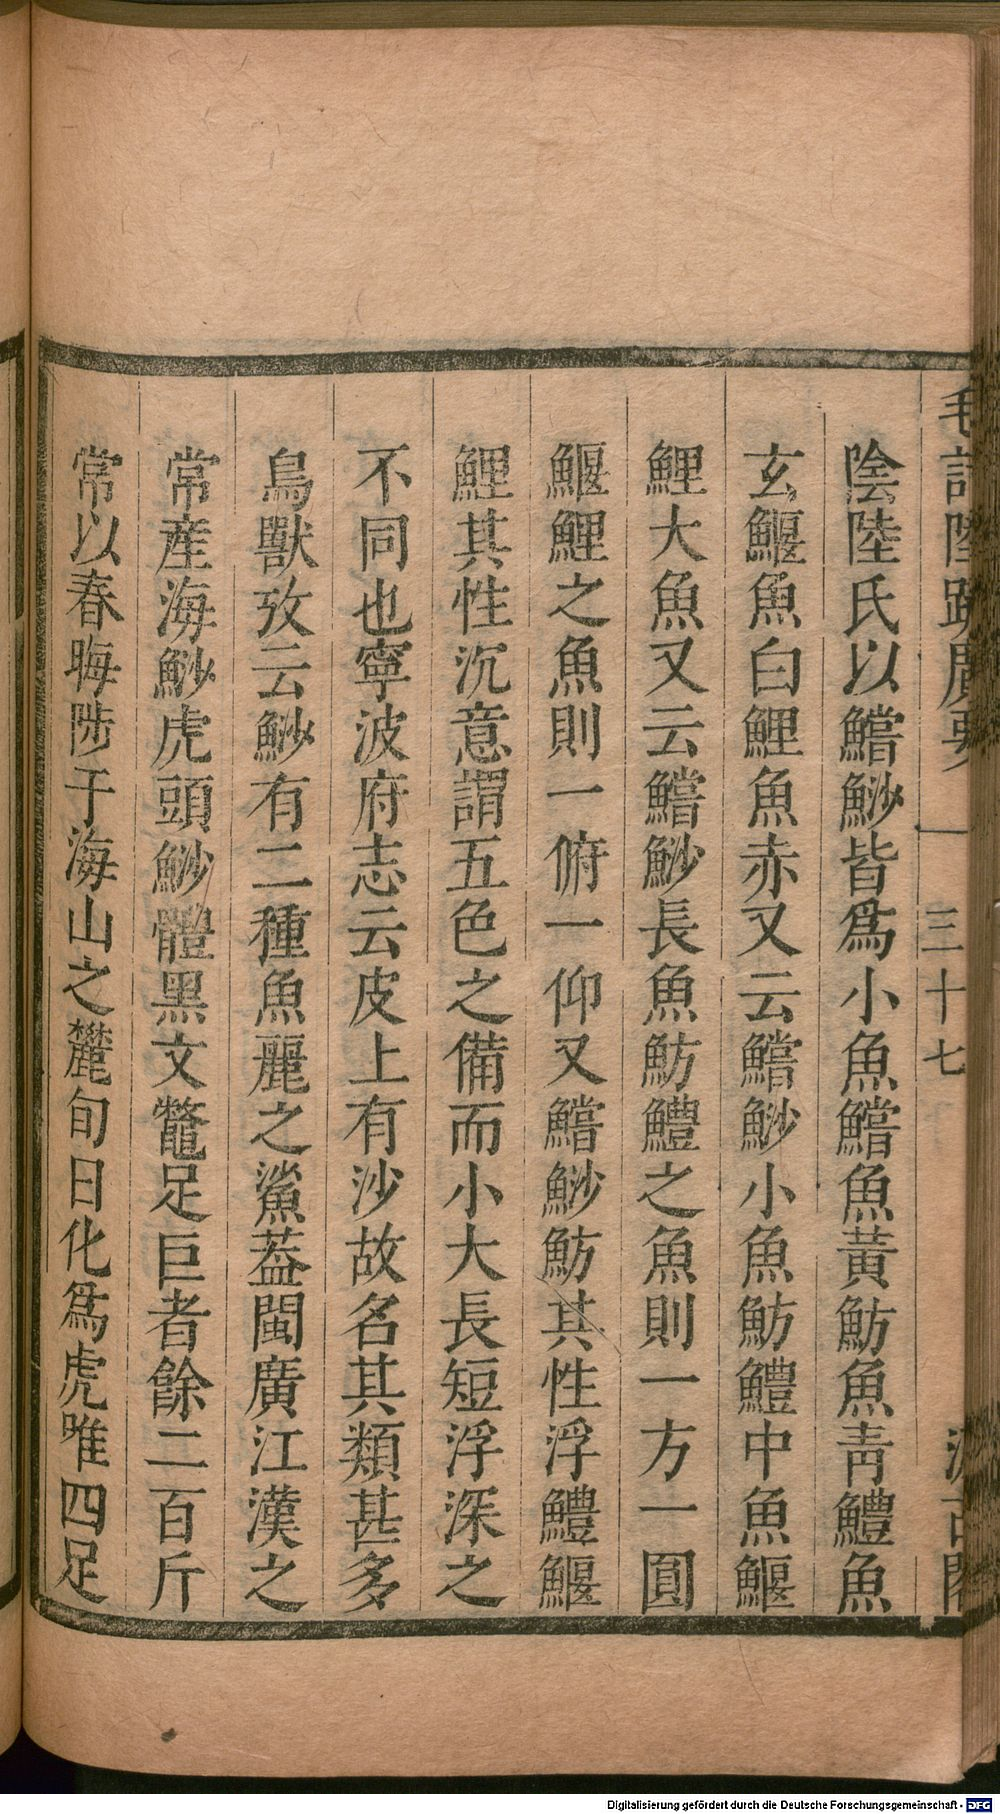 毛詩陸疏廣要 三十七 汲古閣
陰陸氏以鱨魦皆爲小魚鱨魚黃魴魚靑鱧魚
玄鰋魚白鯉魚赤又云鱨魦小魚魴鱧中魚鰋
鯉大魚又云鱨魦長魚魴鱧之魚則一方一圓
鰋鯉之魚則一俯一仰又鱨魦魴其性浮鱧鰋
鯉其性沉意謂五色之備而小大長短浮深之
不同也寧波府志云皮上有沙故名其類甚多
鳥獸攷云魦有二種魚麗之鯊葢閩廣江漢之
常産海魦虎頭魦體黑文鼈足巨者餘二百斤
常以春晦陟于海山之麓旬日化爲虎唯四足
Digitalisierung gefördert durch die Deutsche Forschungsgemeinschaft - DFG